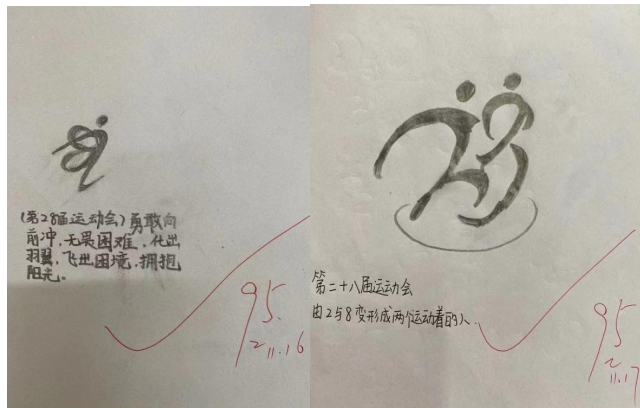 (第28届运动会)勇敢向
前冲,无畏困难,化出
羽翼,飞出困境,拥抱
阳光。
95
2 11.16
28
第二十八届运动会
由2与8变形成两个运动着的人.
95
2 11.17